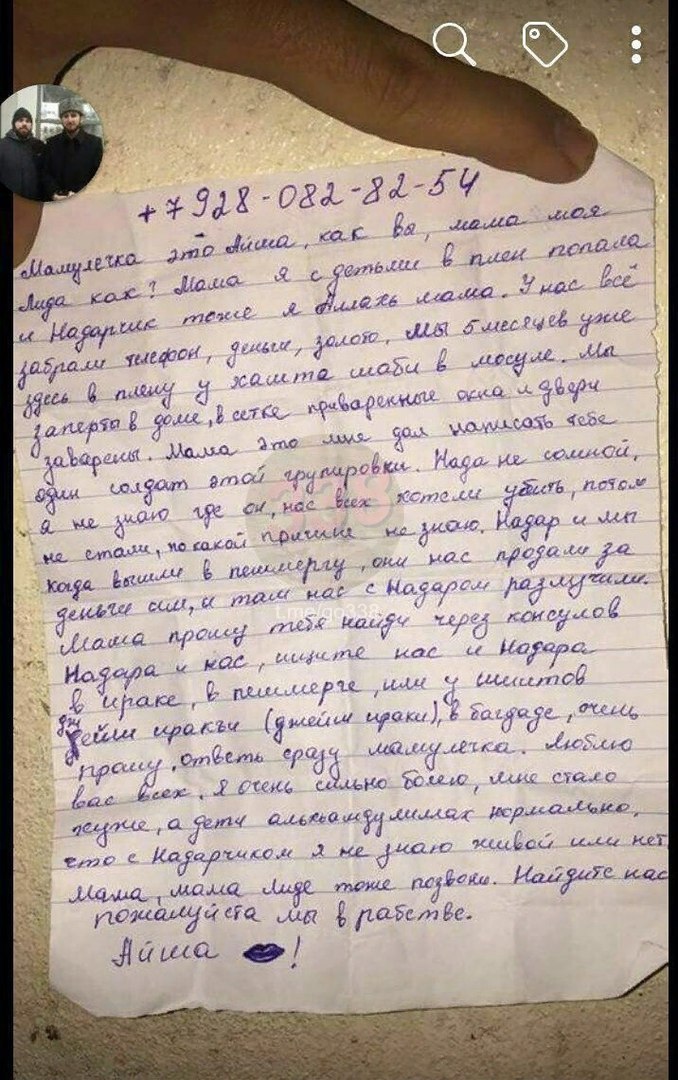 +7 928-082-82-54
Мамулечка это Айша, как вы, мама моя
Лида как? Мама я с детьми в плен попала
и Надарчик тоже я Аллахь мама. У нас всё
забрали телефон, деньги, золото, мы 5 месяцев уже
здесь в плену у хашта шаби в мосуле. Мы
заперты в доме, в сетке приваренные окна и двери
заварены. Мама это мне дал написать тебе
один солдат этой групировки. Нада не сомной,
я не знаю где он, нас всех хотели убить, потом
не стали, по какой причине не знаю. Надар и мы
когда вышли в пешмергу, они нас продали за
деньги им, и там нас с Надаром разлучили.
Мама прошу тебя найди через консулов
Надара и нас, ищите нас и Надара
в ираке, в пешмерге, или у шиитов
джейши иракъи (джейши ираки), в багдаде, очень
прошу. ответь сразу мамулечка. Люблю
вас всех. Я очень сильно болею, мне стало
хуже, а дети алхьамдулиллах нормально,
что с Надарчиком я не знаю живой или нет
Мама, мама Лиде тоже позвони. Найдите нас
пожалуйста мы в рабстве.
Айша !
338
t.me/go338